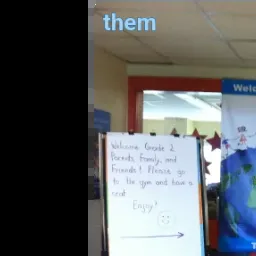 them
Welcome Grade 2
Parents, Family, and
Friends! Please go
to the gym and have a
seat.
Enjoy!